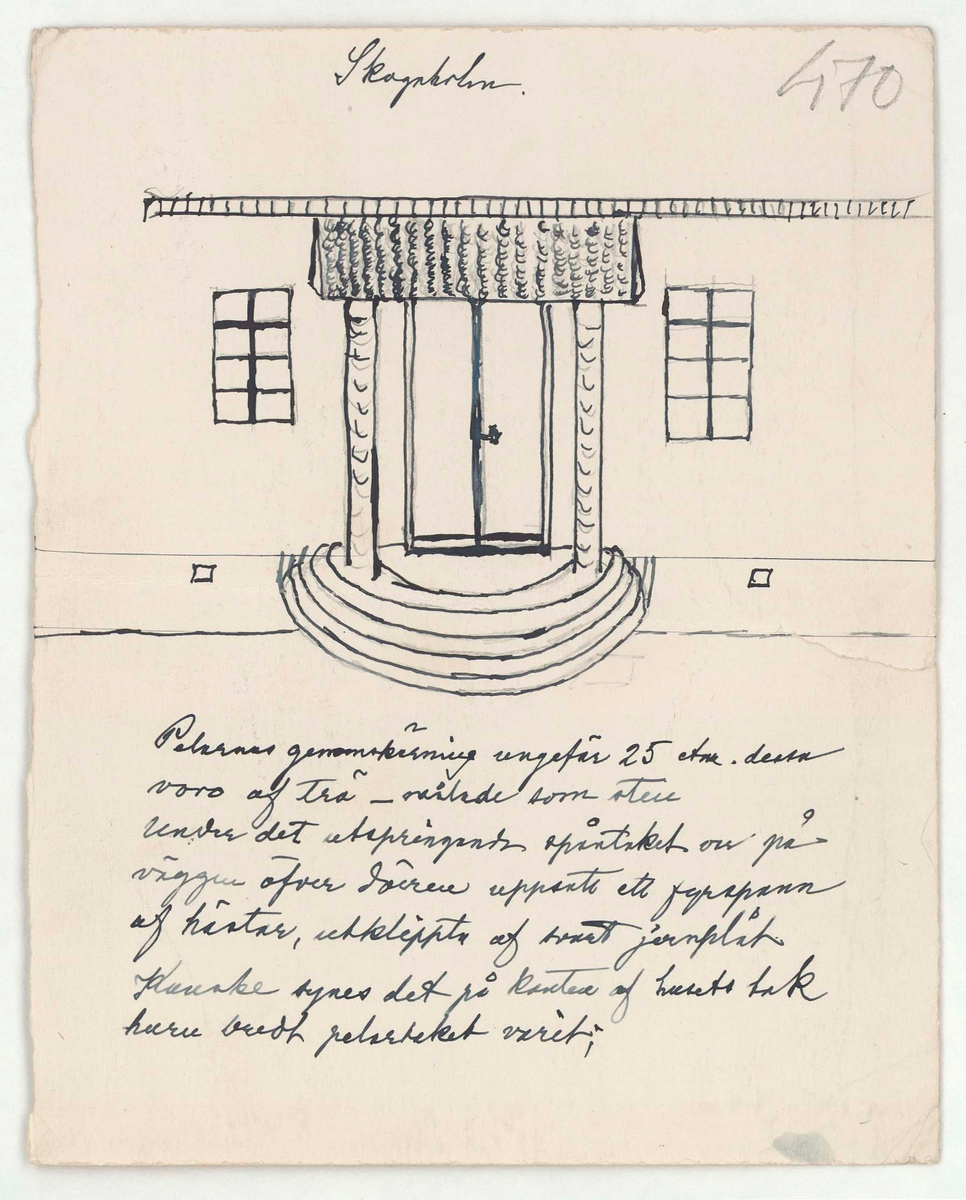 Skogaholm.
470
Pelarnas genomskärning ungefär 25 ctm. dessa
voro af trä – målade som sten
Under det utspringande spåntaket var på
väggen öfver dörren uppsatt ett fyrspann
af hästar, utklippta af svart järnplåt
Kanske synes det på kanten af husets tak
huru bredt pelartaket varit;